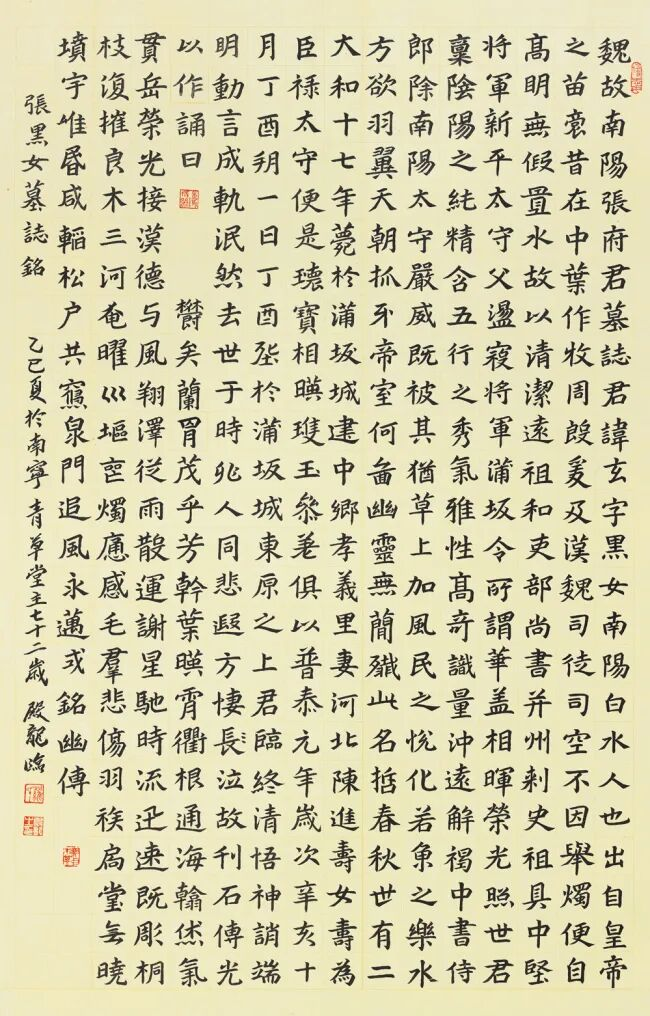 魏故南陽張府君墓誌君諱玄字黑女南陽白水人也出自皇帝
之苗裔昔在中葉作牧周殷爰及漢魏司徒司空不因舉燭便自
髙明無假置水故以清潔遠祖和吏部尚書并州刾史祖具中堅
將軍新平太守父盪寇將軍蒲坂令所謂華盖相暉榮光照世君
稟陰陽之純精含五行之秀氣雅性髙奇識量沖遠解褐中書侍
郎除南陽太守嚴威既被其猶草上加風民之悅化若魚之樂水
方欲羽翼天朝抓牙帝室何啚幽靈無簡殲此名哲春秋世有二
大和十七年薨於蒲坂城建中鄉孝義里妻河北陳進壽女壽為
臣禄太守便是瓌寶相暎璭玉叅差俱以普泰元年歲次辛亥十
月丁酉朔一日丁酉塟於蒲坂城東原之上君臨終清悟神誚端
明動言成軌泯然去世于時兆人同悲遐方悽長泣故刊石傳光
以作誦曰 欝矣蘭胄茂乎芳幹葉暎霄衢根通海翰烋氣
貫岳榮光接漢德与風翔澤從雨散運謝星馳時流迅速既彫桐
枝復摧良木三河奄曜巛塸喪燭痝感毛羣悲傷羽族扃堂无曉
墳宇唯昏咸轀松户共寘泉門追風永邁式銘幽傳
張黑女墓誌銘 乙巳夏於南寧青草堂主七十二歲殿龍臨